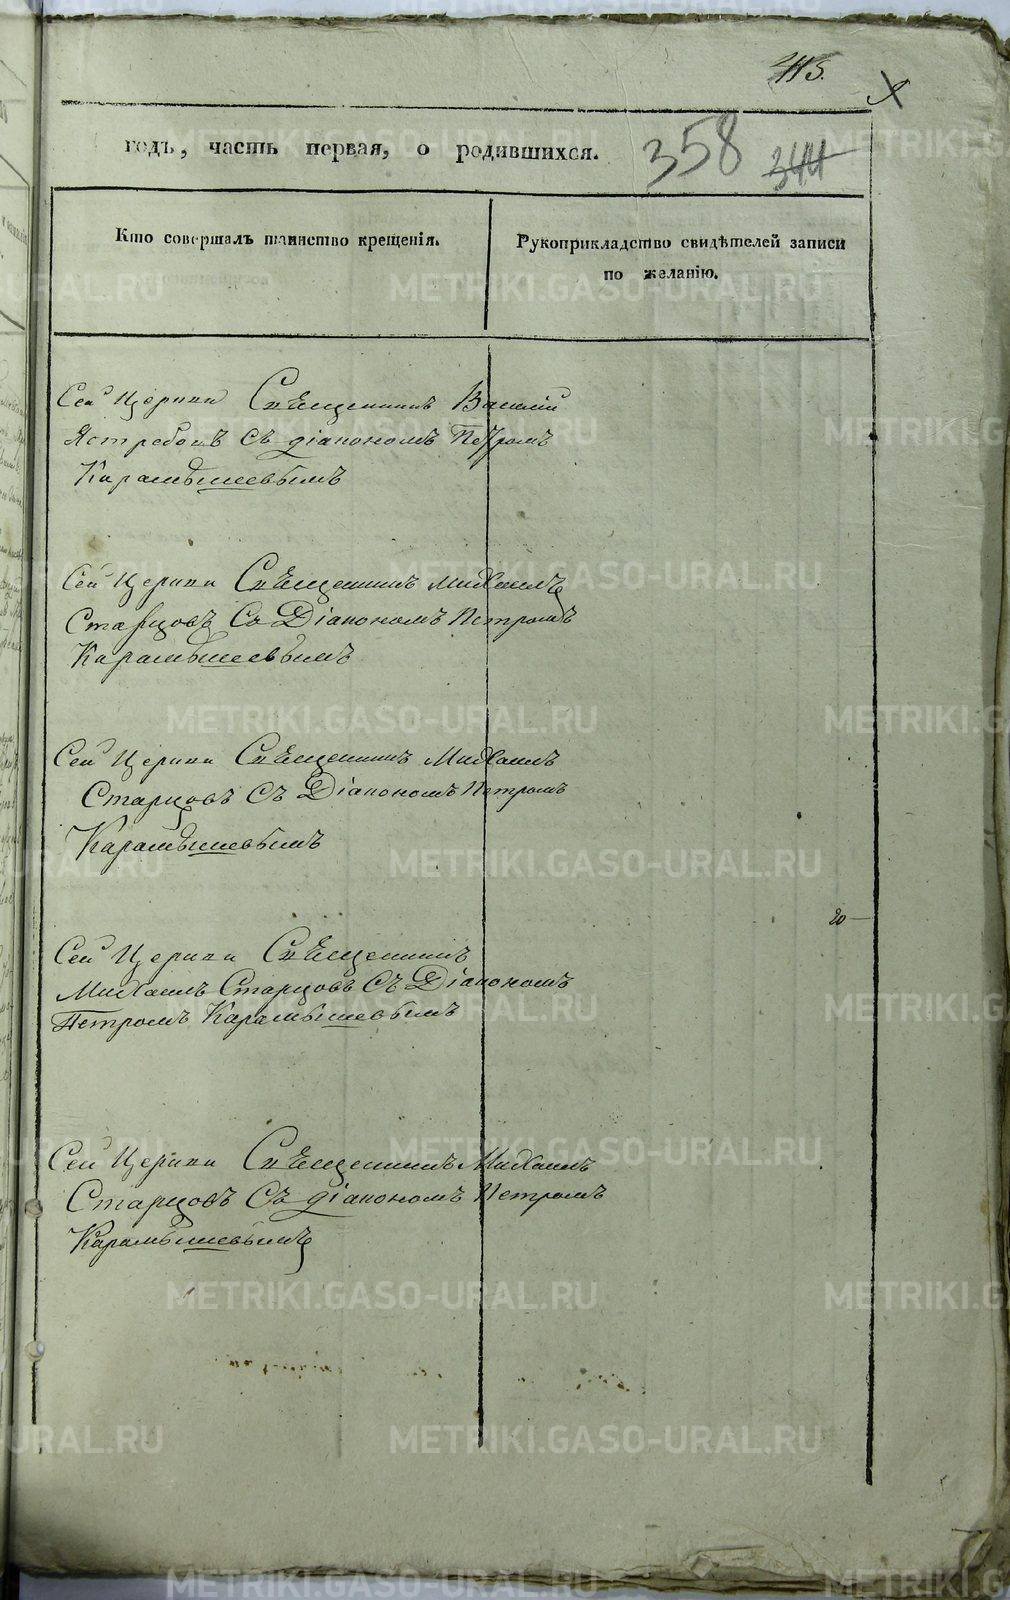 415.
годъ, часть первая, о родившихся.
358 344
Кто совершалъ таинство крещенія.
Рукоприкладство свидѣтелей записи
по желанію.
Сей Церкви Священникъ Василій
Ястребовъ съ діакономъ Петромъ
Карамышевымъ
Сей Церкви Священникъ Михаилъ
Старцовъ Со Діакономъ Петромъ
Карамышевымъ
Сей Церкви Священникъ Михаилъ
Старцовъ Съ Діакономъ Петромъ
Карамышевымъ
20
Сей Церкви Священникъ
Михаилъ Старцовъ Съ Діакономъ
Петромъ Карамышевымъ
Сей Церкви Священникъ Михаилъ
Старцовъ Съ діакономъ Петромъ
Карамышевымъ
METRIKI.GASO-URAL.RU